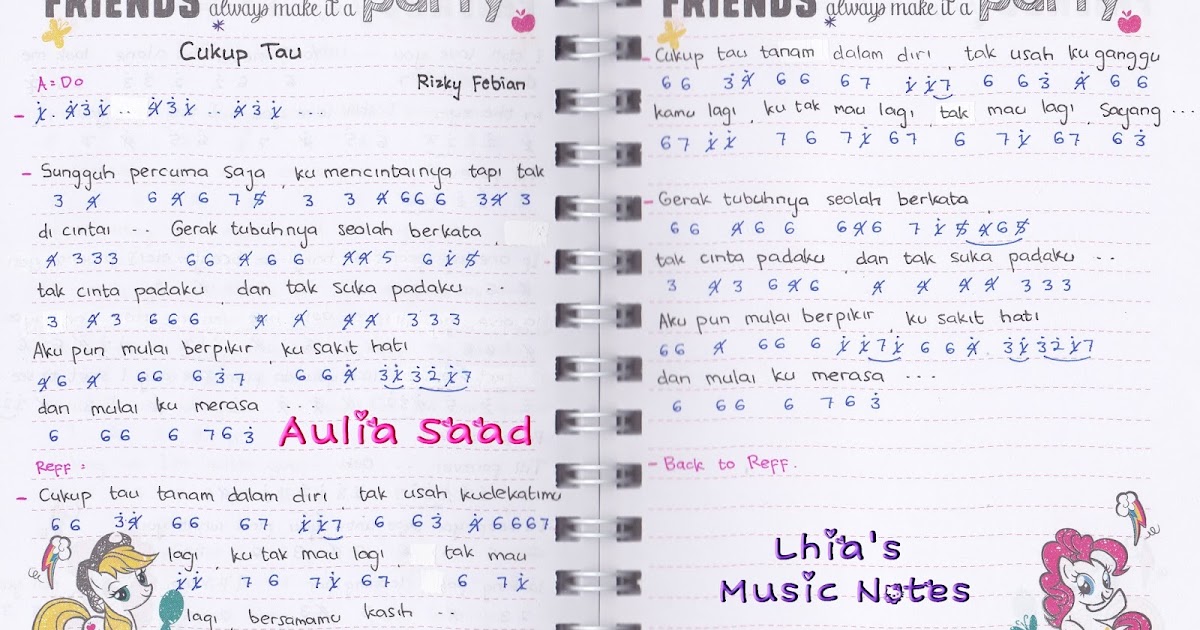 FRIENDS always make it a party
Cukup Tau
A = Do
Rizky Febian
- 1̸̇ . 4̸̇ 3̇ 1̸̇ .. 4̸̇ 3̇ 1̸̇ .. 4̸̇ 3̇ 1̸̇ ...
- Sungguh percuma saja , ku mencintainya tapi tak
3 4̸ 6 4̸ 6 7 5̸ 3 3 4̸ 6 6 6 3 4̸ 3
di cintai .. Gerak tubuhnya seolah berkata ,
4̸ 3 3 3 6 6 4̸ 6 6 4̸ 4̸ 5 6 1̸̇ 5̸
tak cinta padaku , dan tak suka padaku ...
3 4̸ 3 6 6 6 4̸ 4̸ 4̸ 4̸ 3 3 3
Aku pun mulai berpikir , ku sakit hati
4̸ 6 4̸ 6 6 6 3̇ 7 6 6 4̸̇ 3̇ 1̸̇ 3̇ 2̇ 1̸̇ 7
dan mulai ku merasa ...
6 6 6 6 7 6 3̇
Aulia Saad
Reff :
- Cukup tau tanam dalam diri , tak usah kudekatimu
6 6 3̇ 4̸̇ 6 6 6 7 1̸̇ 1̸̇ 7 6 6 3̇ 4̸̇ 6 6 6 7
lagi , ku tak mau lagi , tak mau
1̸̇ 1̸̇ 7 6 7 1̸̇ 6 7 6 7 1̸̇
lagi bersamamu kasih ..
FRIENDS always make it a party
- Cukup tau tanam dalam diri , tak usah ku ganggu
6 6 3̇ 4̸̇ 6 6 6 7 1̸̇ 1̸̇ 7 6 6 3̇ 4̸̇ 6 6
kamu lagi , ku tak mau lagi , tak mau lagi , Sayang ...
6 7 1̸̇ 1̸̇ 7 6 7 1̸̇ 6 7 6 7 1̸̇ 6 7 6 3̇
- Gerak tubuhnya seolah berkata ,
6 6 4̸ 6 6 6 4̸ 6 7 1̸̇ 5̸ 4̸ 6 5̸
tak cinta padaku , dan tak suka padaku ..
3 4̸ 3 6 4̸ 6 4̸ 4̸ 4̸ 4̸ 3 3 3
Aku pun mulai berpikir , ku sakit hati
6 6 4̸ 6 6 6 1̸̇ 1̸̇ 7 1̸̇ 6 6 4̸̇ . 3̇ 1̸̇ 3̇ 2̇ 1̸̇ 7
dan mulai ku merasa ...
6 6 6 6 7 6 3̇
- Back to Reff.
Lhia's
Music Notes